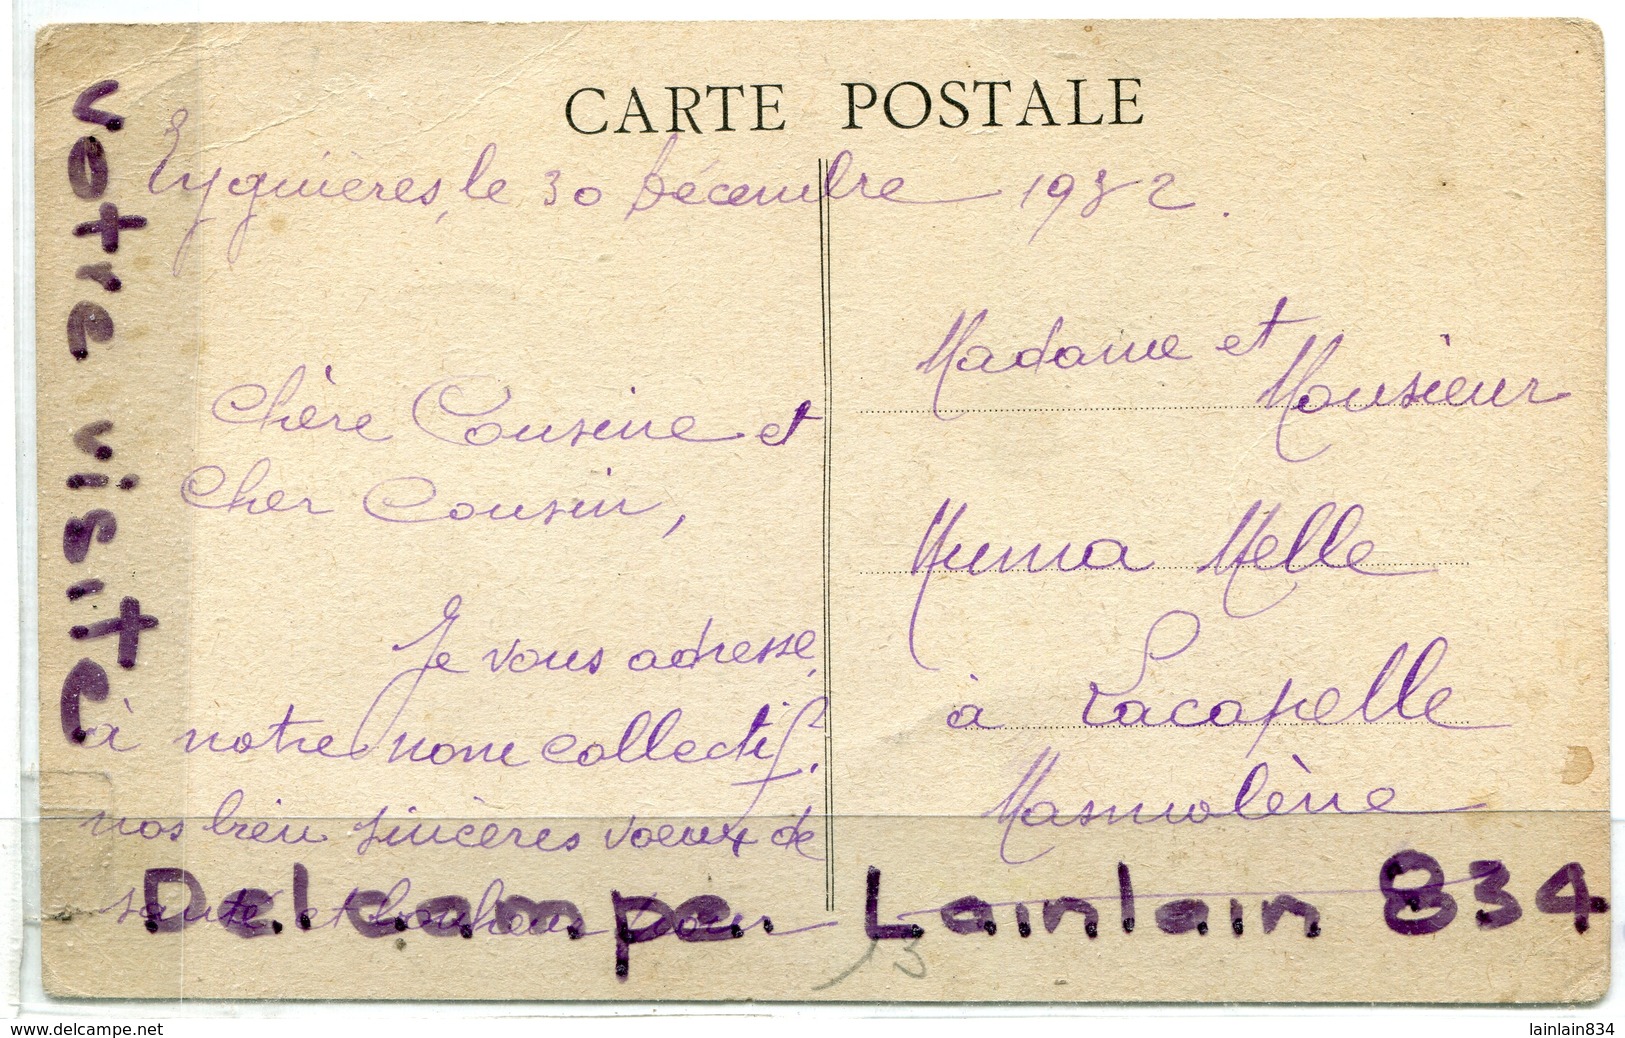 CARTE POSTALE
Eyguières, le 30 Décembre 1932.
Chère Cousine et
Cher Cousin,
Je vous adresse,
à notre nom collectif,
nos bien sincères voeux de
santé et bonheur pour
Madame et
Monsieur
Numa Melle
à Lacapelle
Masmolène
votre visite
Delcampe. Lainlain 834
13
www.delcampe.net
lainlain834